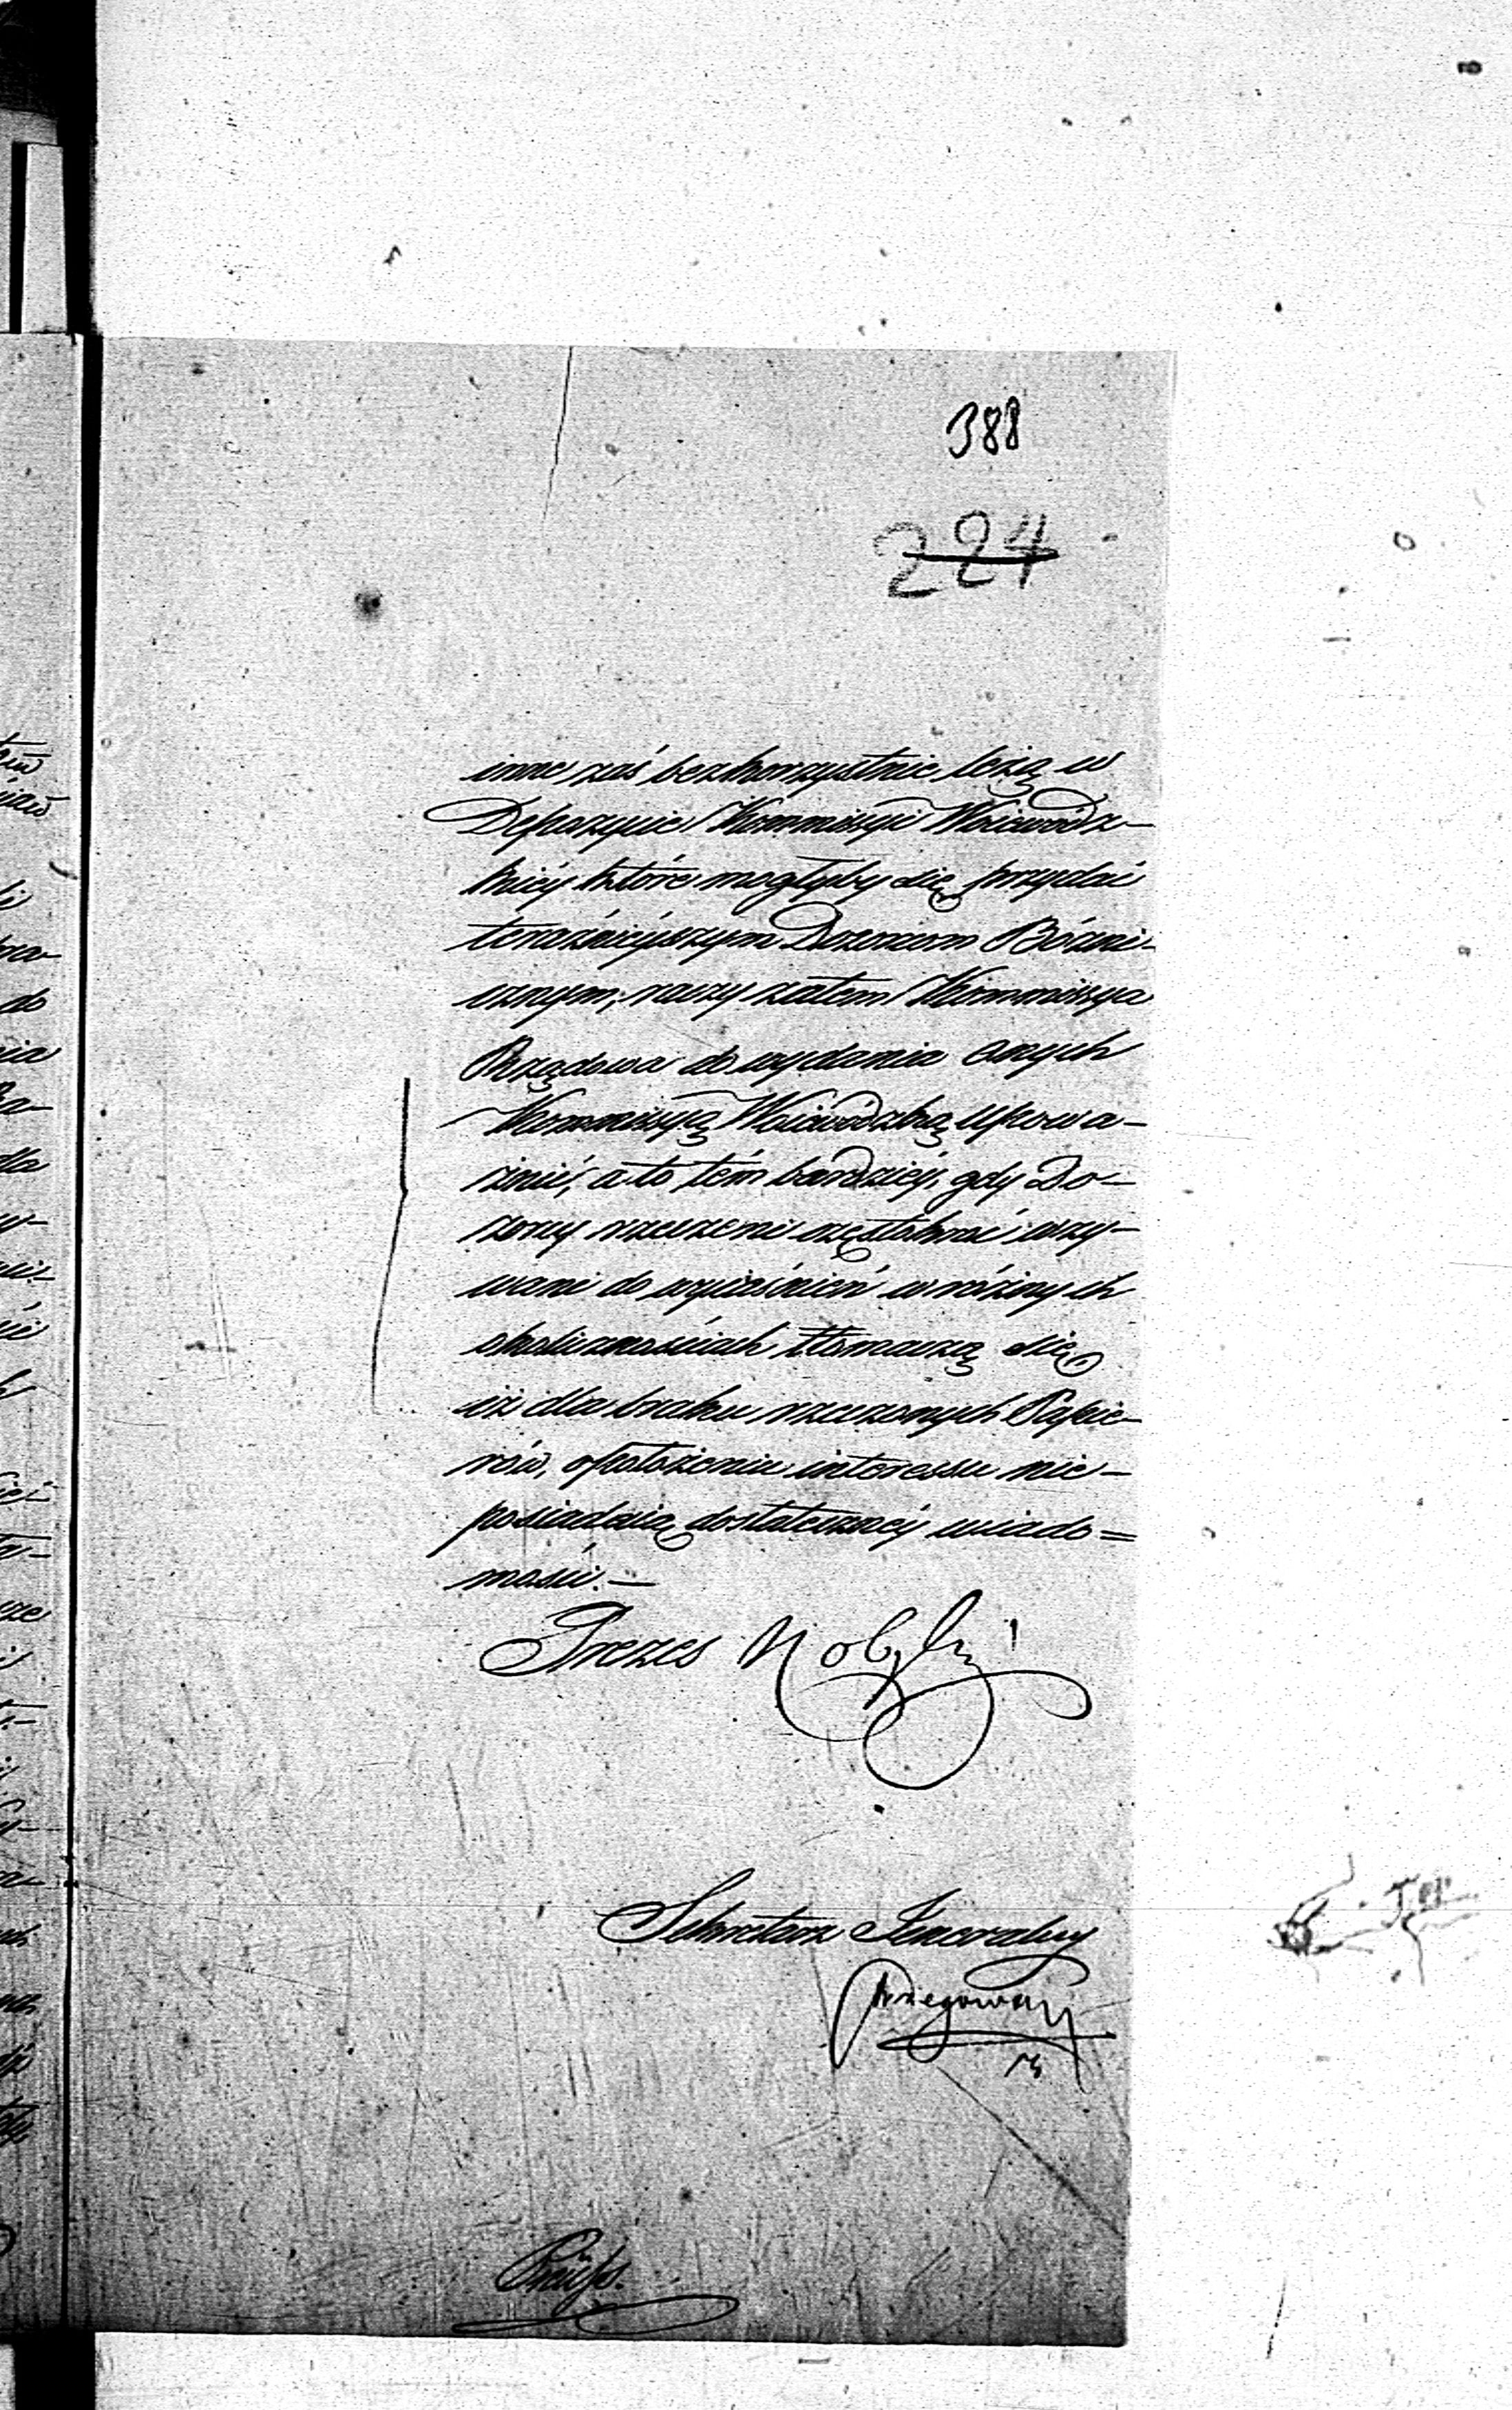 388
224
inne zaś bezkorzystnie leżą w
Depozycie Kommissyi Woiewodz-
kiéy które mogłyby się przydać
teraźnieyszym Dozorom Bóżni-
cznym; raczy zatem Kommissya
Rządowa do wydania onych
Kommissyą Woiewódzką upowa-
żnić, a to tém bardziéy, gdy Do-
zory rzeczone częstokroć wzy-
wani do wyiaśnień w różnych
okolicznościach tłomaczą się
iż dla braku rzeczonych Papie-
rów, o położeniu interessu nie-
posiadaią dostatecznéy wiado=
mości. —
Prezes
Sekretarz Jeneralny